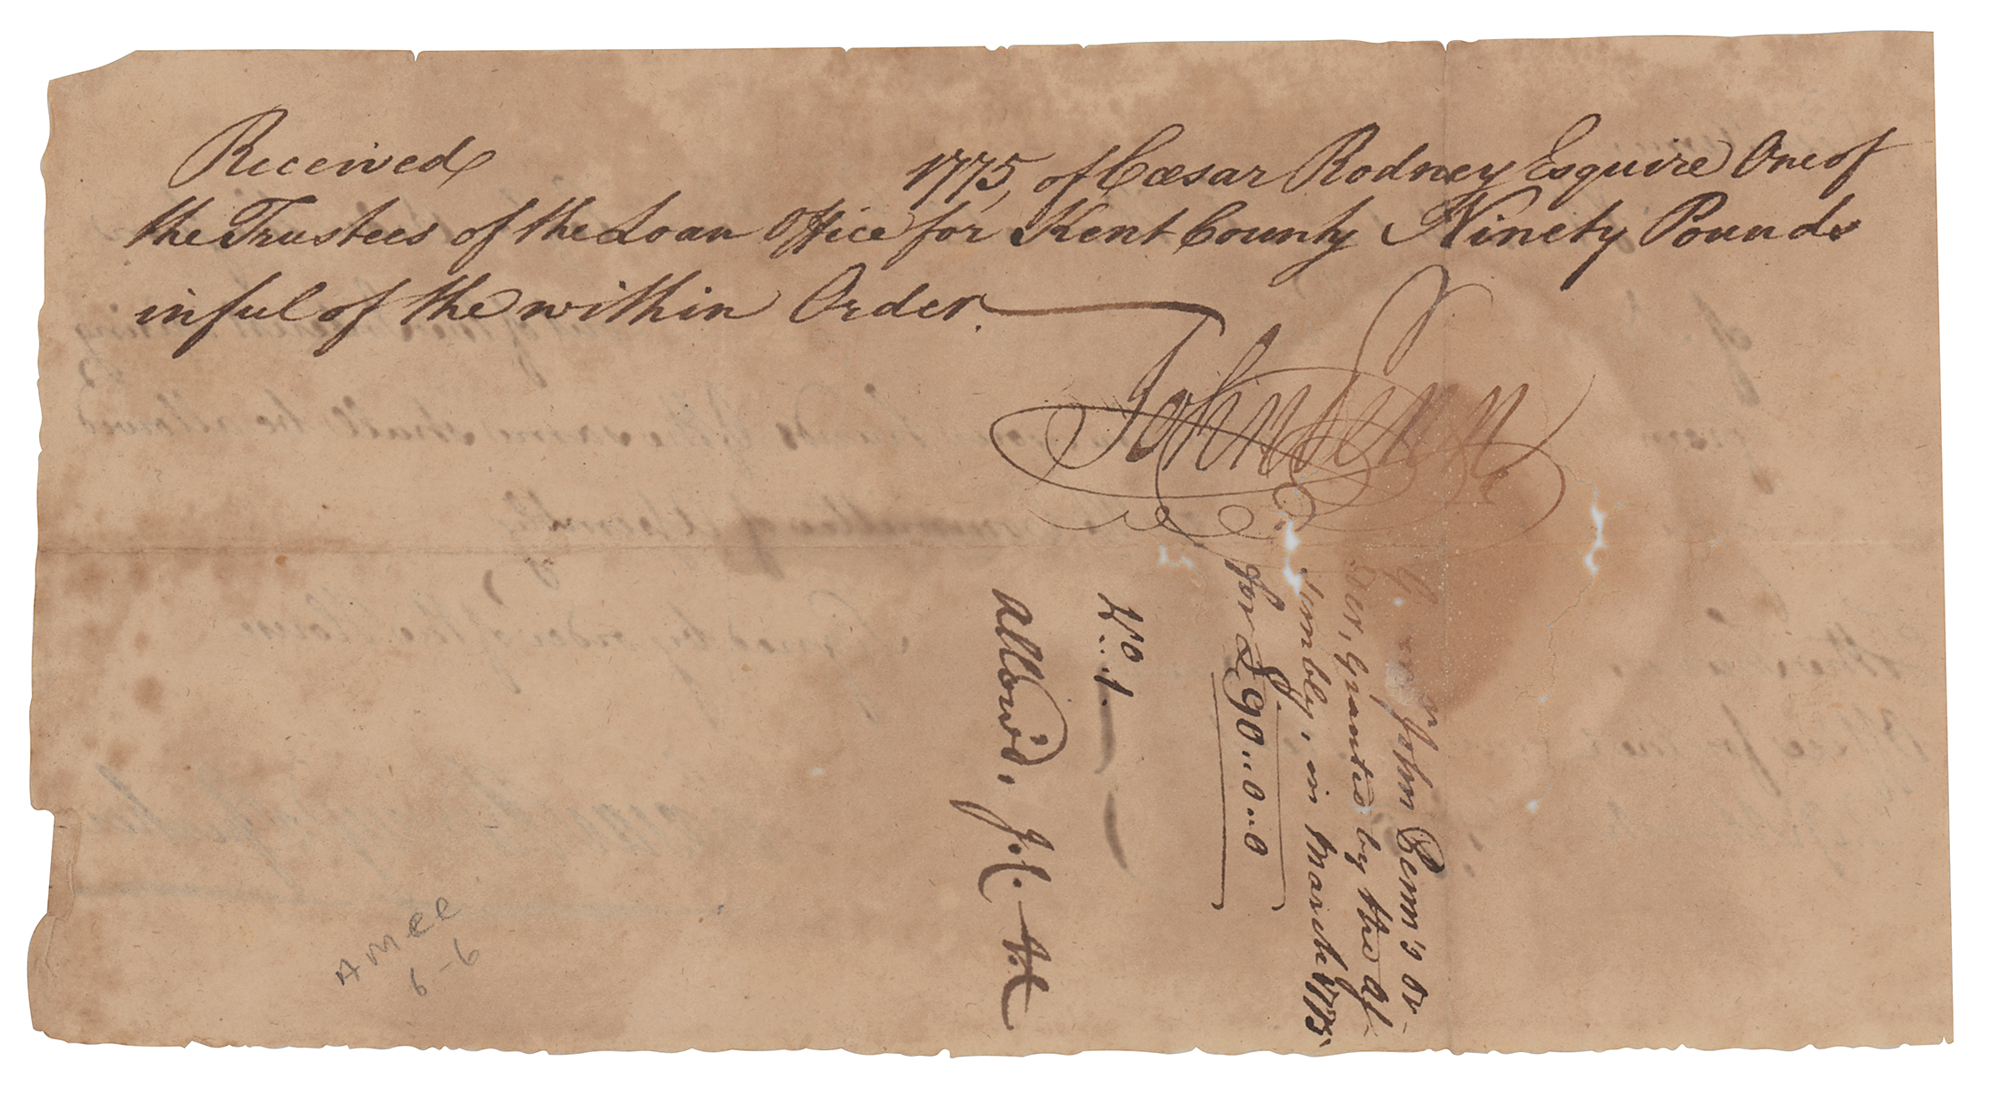 Received 1775, of Cæsar Rodney Esquire One of
the Trustees of the Loan Office for Kent County Ninety Pounds
in ful of the within Order.
John Penn
John Penn's or-
der, Granted by the As-
sembly, in March 1775.
for £90..0..0
No. 1
Allow'd,
AMEE
6-6